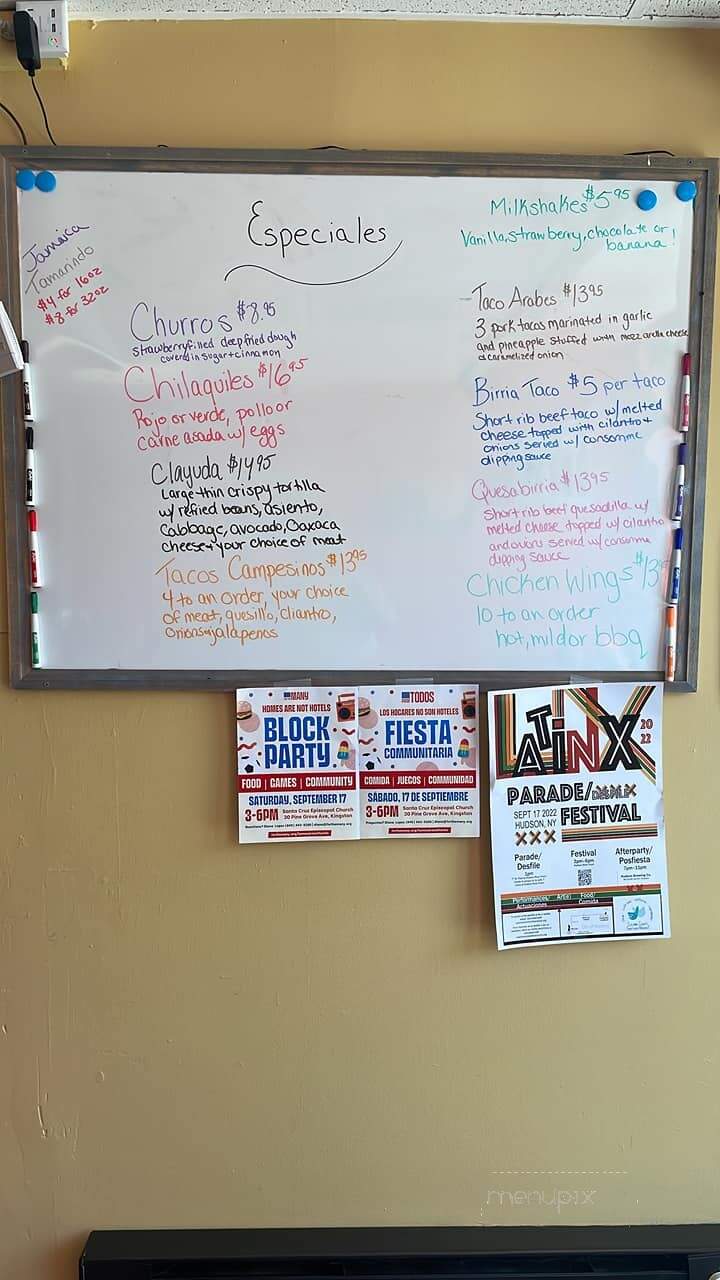 Especiales
Jamaica
Tamarindo
$4 for 16oz
$8 for 32oz
Milkshakes $5.95
Vanilla, strawberry, chocolate or
banana!
Churros $8.95
strawberry filled deep fried dough
covered in sugar + cinnamon
Chilaquiles $16.95
Rojo or verde, pollo or
carne asada w/ eggs
Clayuda $14.95
Large thin crispy tortilla
w/ refied beans, asiento,
Cabbage, avocado, Oaxaca
cheese + your choice of meat
Tacos Campesinos $13.95
4 to an order, your choice
of meat, quesillo, cliantro,
onions + jalapenos
Taco Arabes $13.95
3 pork tacos marinated in garlic
and pineapple stuffed with mozzarella cheese
& caramelized onion
Birria Taco $5 per taco
Short rib beef taco w/ melted
cheese topped with cilantro +
onions served w/ consomme
dipping sauce
Quesabirria $13.95
short rib beef quesadilla w/
melted cheese topped w/ cilantro
and onions served w/ consomme
dipping sauce
Chicken Wings $13.95
10 to an order
hot, mild or bbq
MANY
HOMES ARE NOT HOTELS
BLOCK
PARTY
FOOD | GAMES | COMMUNITY
SATURDAY, SEPTEMBER 17
3-6PM
Santa Cruz Episcopal Church
30 Pine Grove Ave, Kingston
TODOS
LOS HOGARES NO SON HOTELES
FIESTA
COMUNITARIA
COMIDA | JUEGOS | COMUNIDAD
SÁBADO, 17 DE SEPTIEMBRE
3-6PM
Santa Cruz Episcopal Church
30 Pine Grove Ave, Kingston
LATINX
2022
PARADE/DESFILE
SEPT 17 2022
HUDSON, NY
FESTIVAL
XXX
Parade/
Desfile
Festival
Afterparty/
Posfiesta
Performances/
Actuaciones
Art(e)
Food/
Comida
menupix